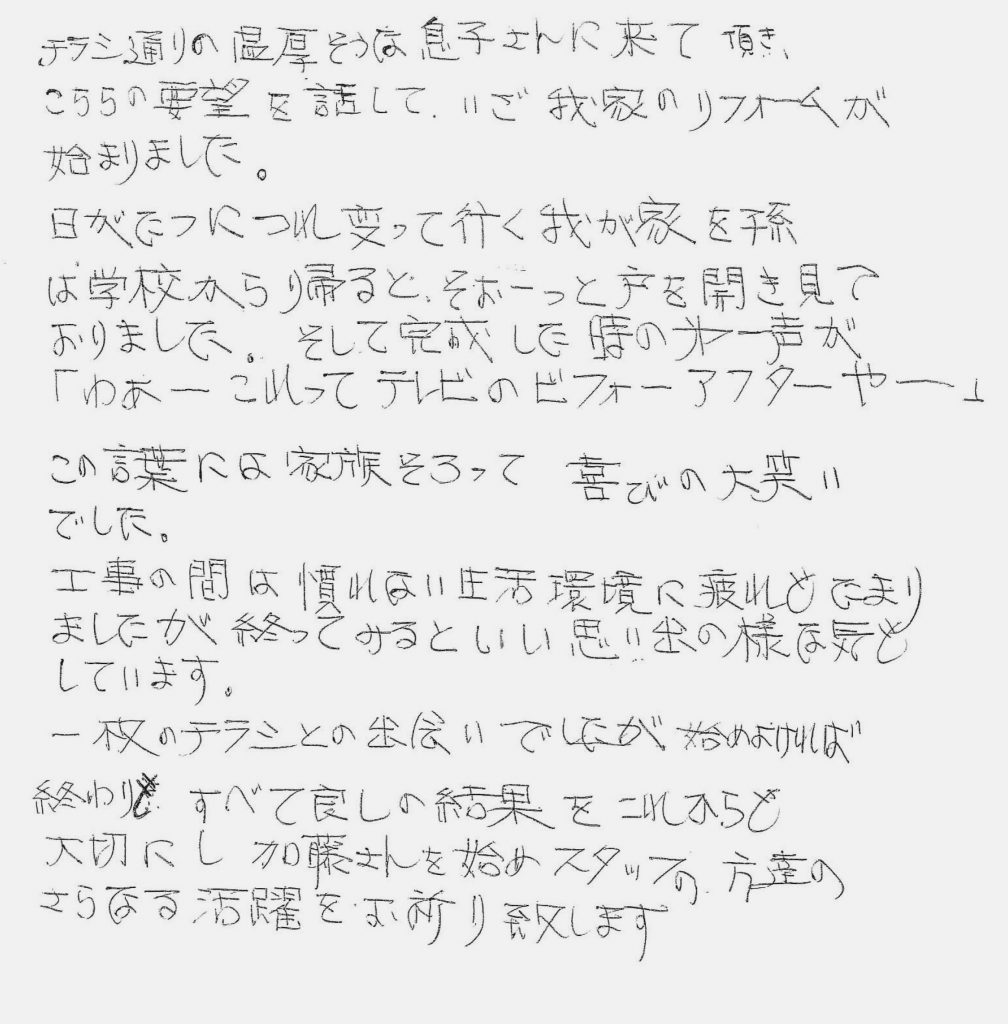 チラシ通りの温厚そうな息子さんに来て頂き、
こちらの要望を話して、いざ我家のリフォームが
始まりました。
日がたつにつれ変って行く我が家を孫
は学校から帰ると、そぉーっと戸を開き見て
おりました。そして完成した時の第一声が
「わぁーこれってテレビのビフォーアフターやー」
この言葉には家族そろって喜びの大笑い
でした。
工事の間は慣れない生活環境に疲れもたまり
ましたが終ってみるといい思い出の様な気も
しています。
一枚のチラシとの出会いでしたが、始めよければ
終わりも すべて良しの結果をこれからも
大切にし 加藤さんを始めスタッフの方達の
さらなる活躍をお祈り致します